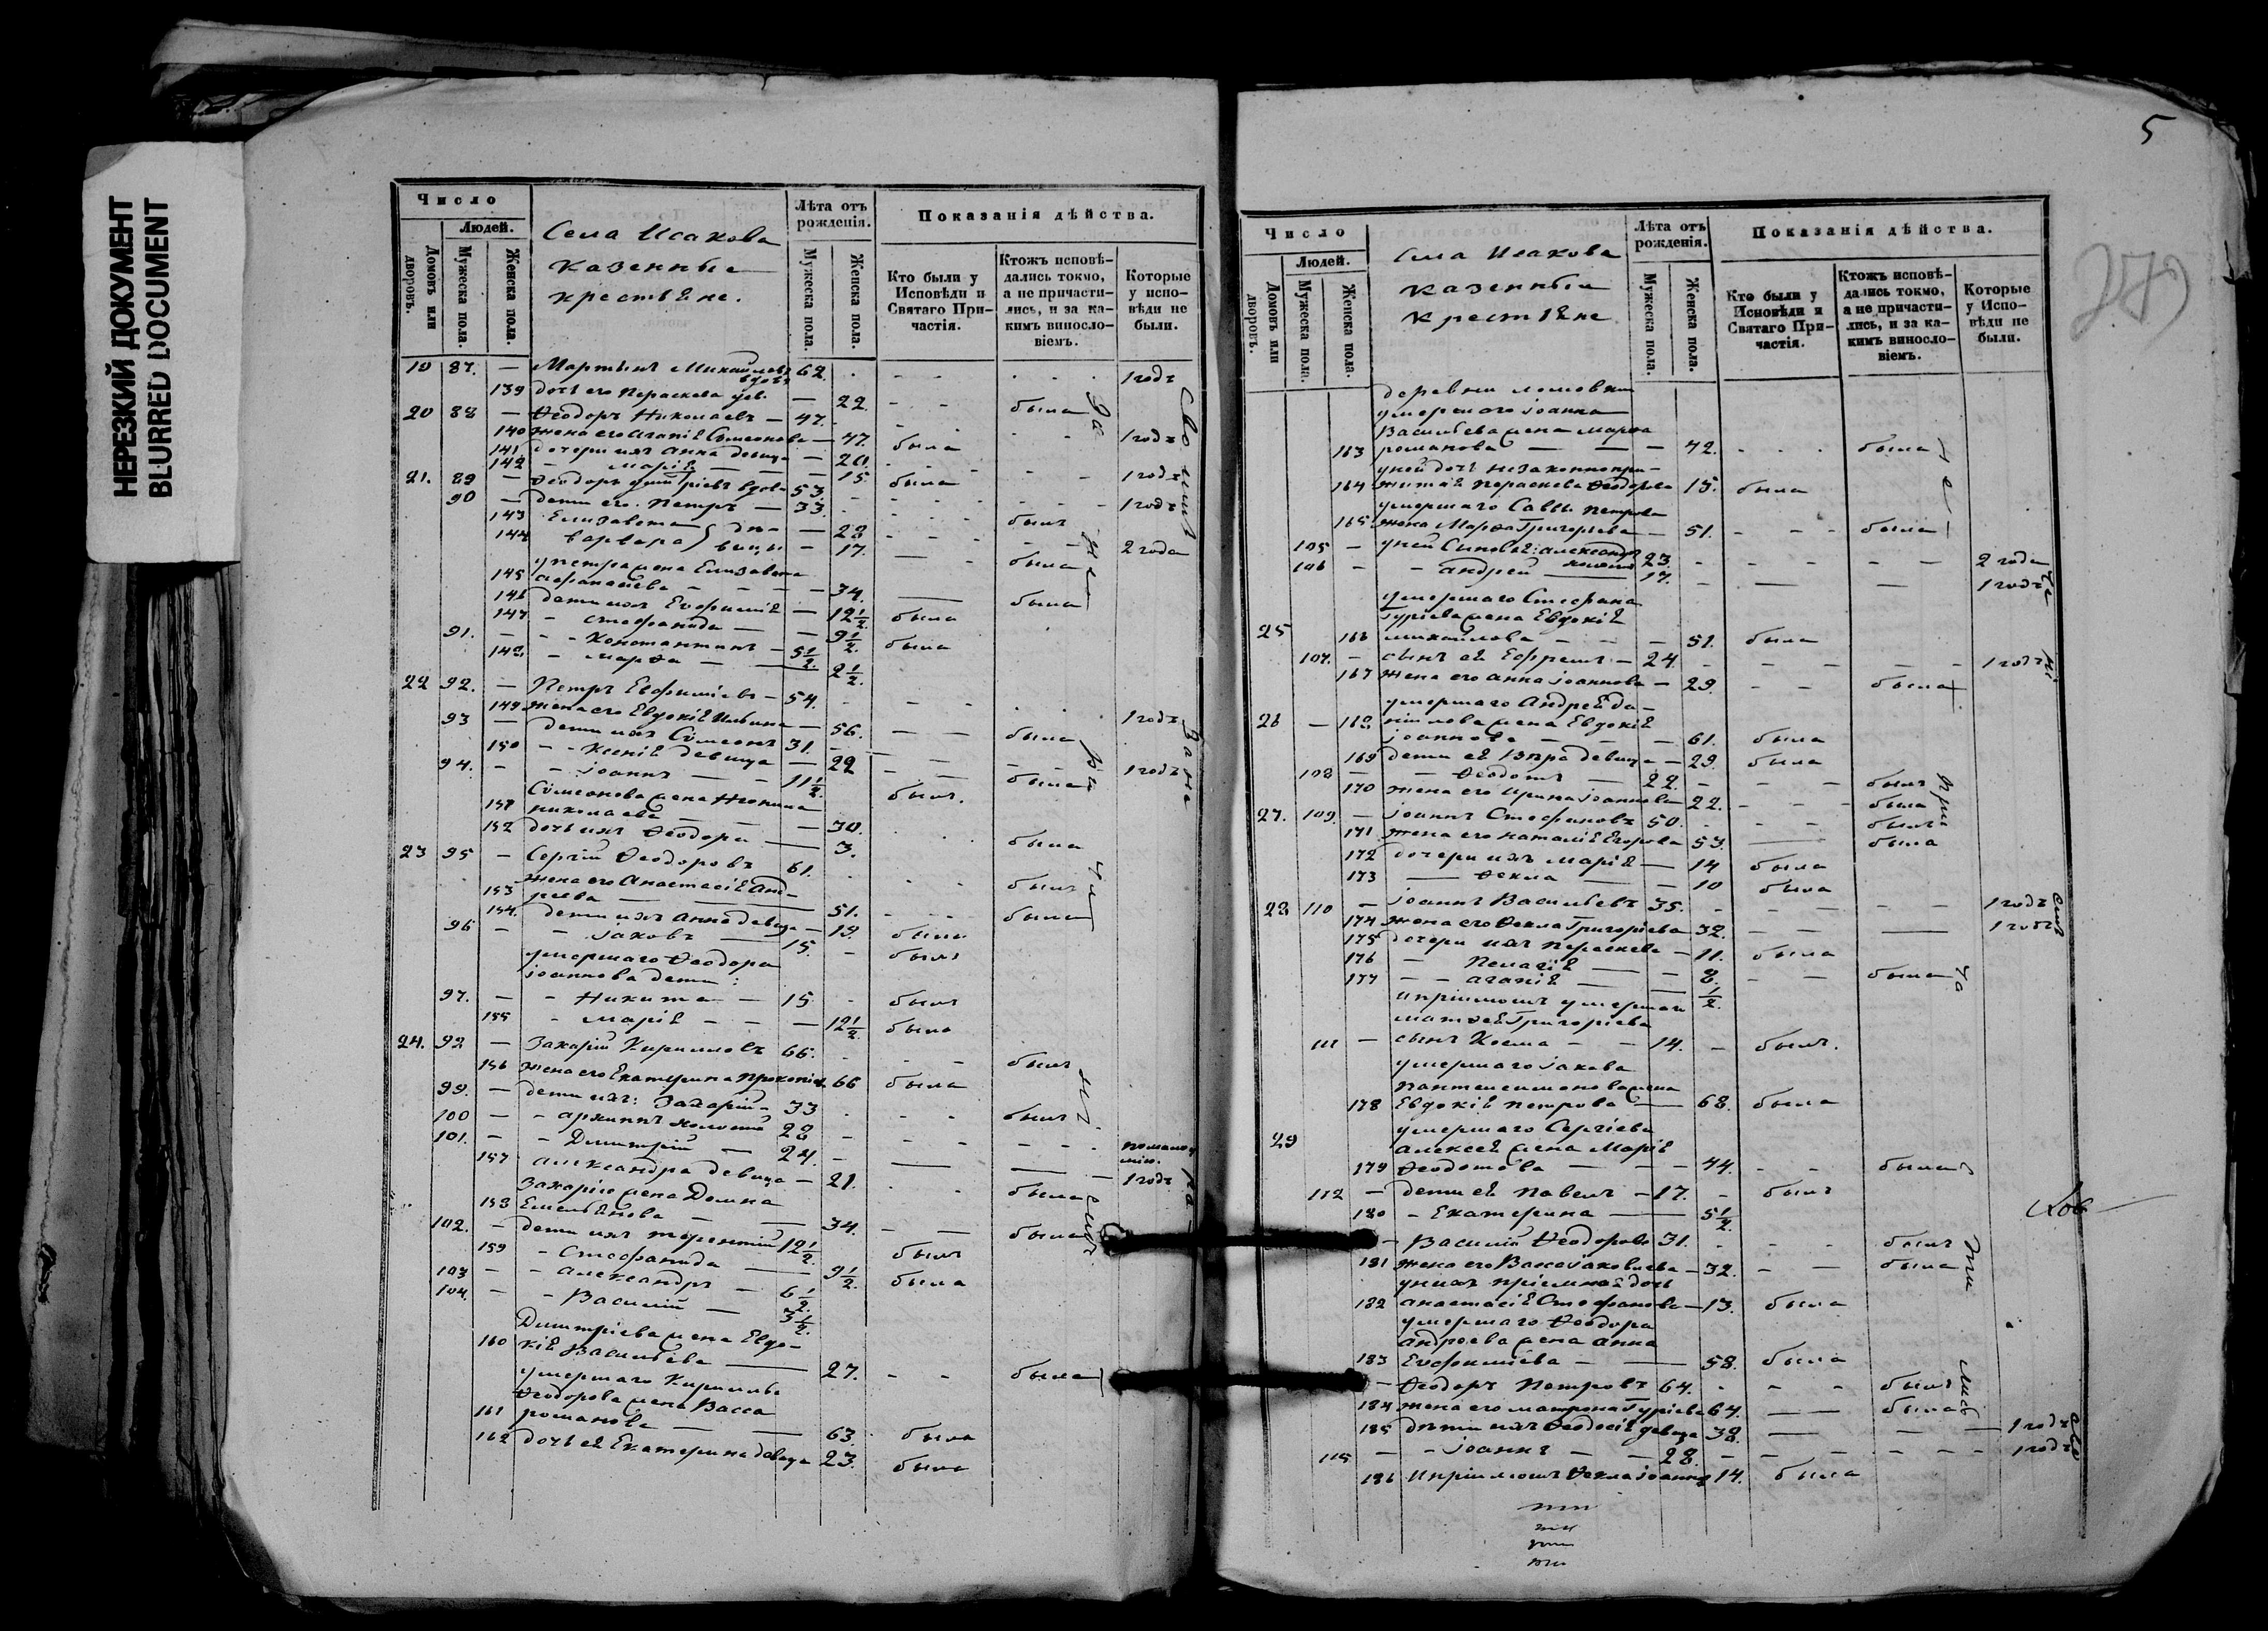 НЕРЕЗКИЙ ДОКУМЕНТ
BLURRED DOCUMENT
Число
Людей.
Домовъ или дворовъ.
Мужеска пола.
Женска пола.
Села Исакова
казенные
крестьяне.
Лѣта отъ рожденія.
Мужеска пола.
Женска пола.
Показанія дѣйства.
Кто были у Исповѣди и Святаго Причастія.
Ктожъ исповѣдались токмо, а не причастились, и за какимъ винословіемъ.
Которые у исповѣди не были.
19 87. — Мартынъ Михайловъ вдовъ 62. 1 годъ
139 дочь его Параскева дев. — 22. была
20 88 — Ѳеодоръ Николаевъ — 47. 1 годъ
140 жена его Агапія Симеонова — 47. была
141 дочери ихъ Анна девица — 20. 1 годъ
142 — Марія — 15 была
21. 89 — Ѳеодоръ вдовъ 53. 1 годъ
90 — дети его. Петръ — 33. былъ
143 Елизавета — 28
144 Варвара — 17. 2 года
у Петра жена Елизавета
145 — 34. была
146 дети ихъ Евфимія — 12½ была
147 — Стефанида — 9½ была
91. — Константинъ — 5½
148 — Марѳа — 2½
22 92. — Петръ Евфиміевъ — 54. 1 годъ
149 жена его Евдокія Ильина — 56. была
93 — дети ихъ Симеонъ 31. 1 годъ
150 — Ксенія девица — 22 была
94. — Іоаннъ — 11½ былъ.
Симеонова жена
151 Николаева — 30.
152 дочь ихъ Ѳеодора — 3.
23 95 — Сергій Ѳеодоровъ 61.
жена его Анастасія Анд-
153 реева — 51.
154. дети ихъ Анна девица — 19.
96 — Іаковъ — 15. былъ
умершаго Ѳеодора
Іоаннова дети:
97. — Никита — 15 былъ
155 — Марія — 12½ была
24. 98 — Захарій Кирилловъ 66. былъ
156 жена его Екатерина 66 была
99. — дети ихъ: Захарій — 33 былъ
100 — 28
101. — Димитрій — 24.
157 Александра девица — 21. 1 годъ
Захарію жена Домна
158 Емельянова — 34. была
102. — дети ихъ 12½ былъ
159 — Стефанида — 9½ была
103 — Александръ — 6½
104. — Василій — 3½
Димитріева жена Евдо-
160 кія Васильева — 27. была
умершаго Кирилла
Ѳеодорова жена Васса
161 Романова — 63. была
162 дочь ея Екатерина девица 23. была
5
Число
Людей.
Домовъ или дворовъ.
Мужеска пола.
Женска пола.
Села Исакова
казенныи
крестьяне
Лѣта отъ рожденія.
Мужеска пола.
Женска пола.
Показанія дѣйства.
Кто были у Исповѣди и Святаго Причастія.
Ктожъ исповѣдались токмо, а не причастились, и за какимъ винословіемъ.
Которые у Исповѣди не были.
деревни
умершаго Іоанна
Васильева жена Марѳа
163 Романова — 42. была
у ней дочь незаконнопри-
164 житая Параскева Ѳеодорова 15. была
умершаго Саввы Петрова
165 жена Марѳа Григорьева — 51. была
105 — у ней сыновья: Александръ 23. 2 года
106 — Андрей — 17. 1 годъ
умершаго Стефана
Гурьева жена Евдокія
25 166 Михайлова — 51. была
107. — сынъ ея Ефремъ — 24. 1 годъ
167 жена его Анна Іоаннова — 29. была
умершаго Андрея Да-
26 — 168 нилова жена Евдокія
Іоаннова — 61. была
169 дети ея Вѣра девица — 29. была
108 — Ѳеодотъ — 22. былъ
170 жена его Ирина Іоаннова 22. была
27. 109. — Іоаннъ Стефановъ 50. былъ
171. жена его Наталія Егорова 53. была
172 дочери ихъ Марія — 14 была
173 — Ѳекла — 10 была
28 110 — Іоаннъ Васильевъ 35. 1 годъ
174 жена его Ѳекла Григорьева 32. 1 годъ
175 дочери ихъ Параскева — 11. была
176 — Пелагія — 8. была
177 — Агапія — ½
умершаго
Матѳея Григорьева
111 — сынъ Косма — 14. былъ.
умершаго Іакова
Пантелеимонова жена
178 Евдокія Петрова — 68. была
умершаго Сергіева
29 Алексея жена Марія
179 Ѳеодотова — 44. была
112 — дети ея Павелъ — 17. былъ
180 — Екатерина — 5½
— Василій Ѳеодоровъ 31. былъ
181 жена его Васса Іаковлева — 32. была
у нихъ пріемная дочь
182 Анастасія Стефанова — 13. была
умершаго Ѳеодора
Андреева жена Анна
183 Евфиміева — 58. была
— Ѳеодоръ Петровъ 64. былъ
184 жена его Матрона Гурьева 64. была
185 дѣти ихъ Ѳеодосія девица 38. 1 годъ
115 — Іоаннъ — 28. 1 годъ
186 Ѳекла 14. была